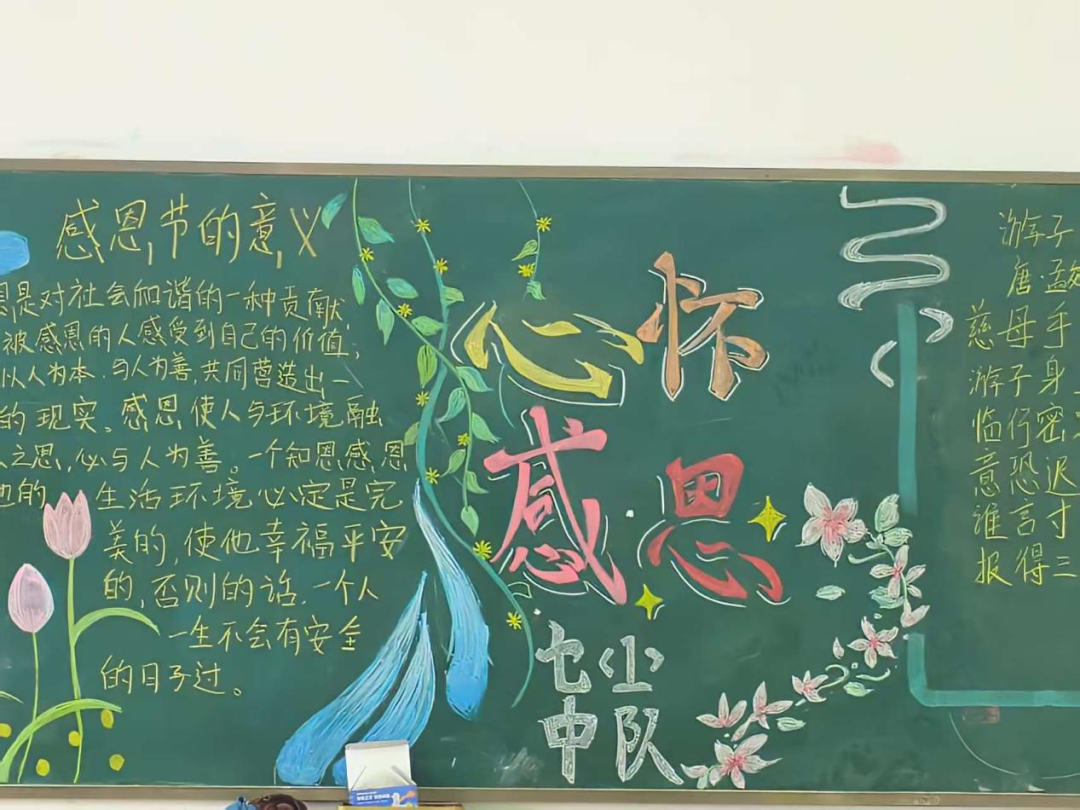 感恩节的意义
恩是对社会和谐的一种贡献
被感恩的人感受到自己的价值;
以人为本.与人为善,共同营造出一
的现实。感恩,使人与环境融
之恩,心与人为善。一个知恩感恩
他的 生活环境必定是完
美的,使他幸福平安
的,否则的话.一个人
一生不会有安全
的日子过。
心怀
感恩
七(1)
中队
游子
唐 孟
慈母手
游子身上
临行密
意恐迟
谁言寸
报得三